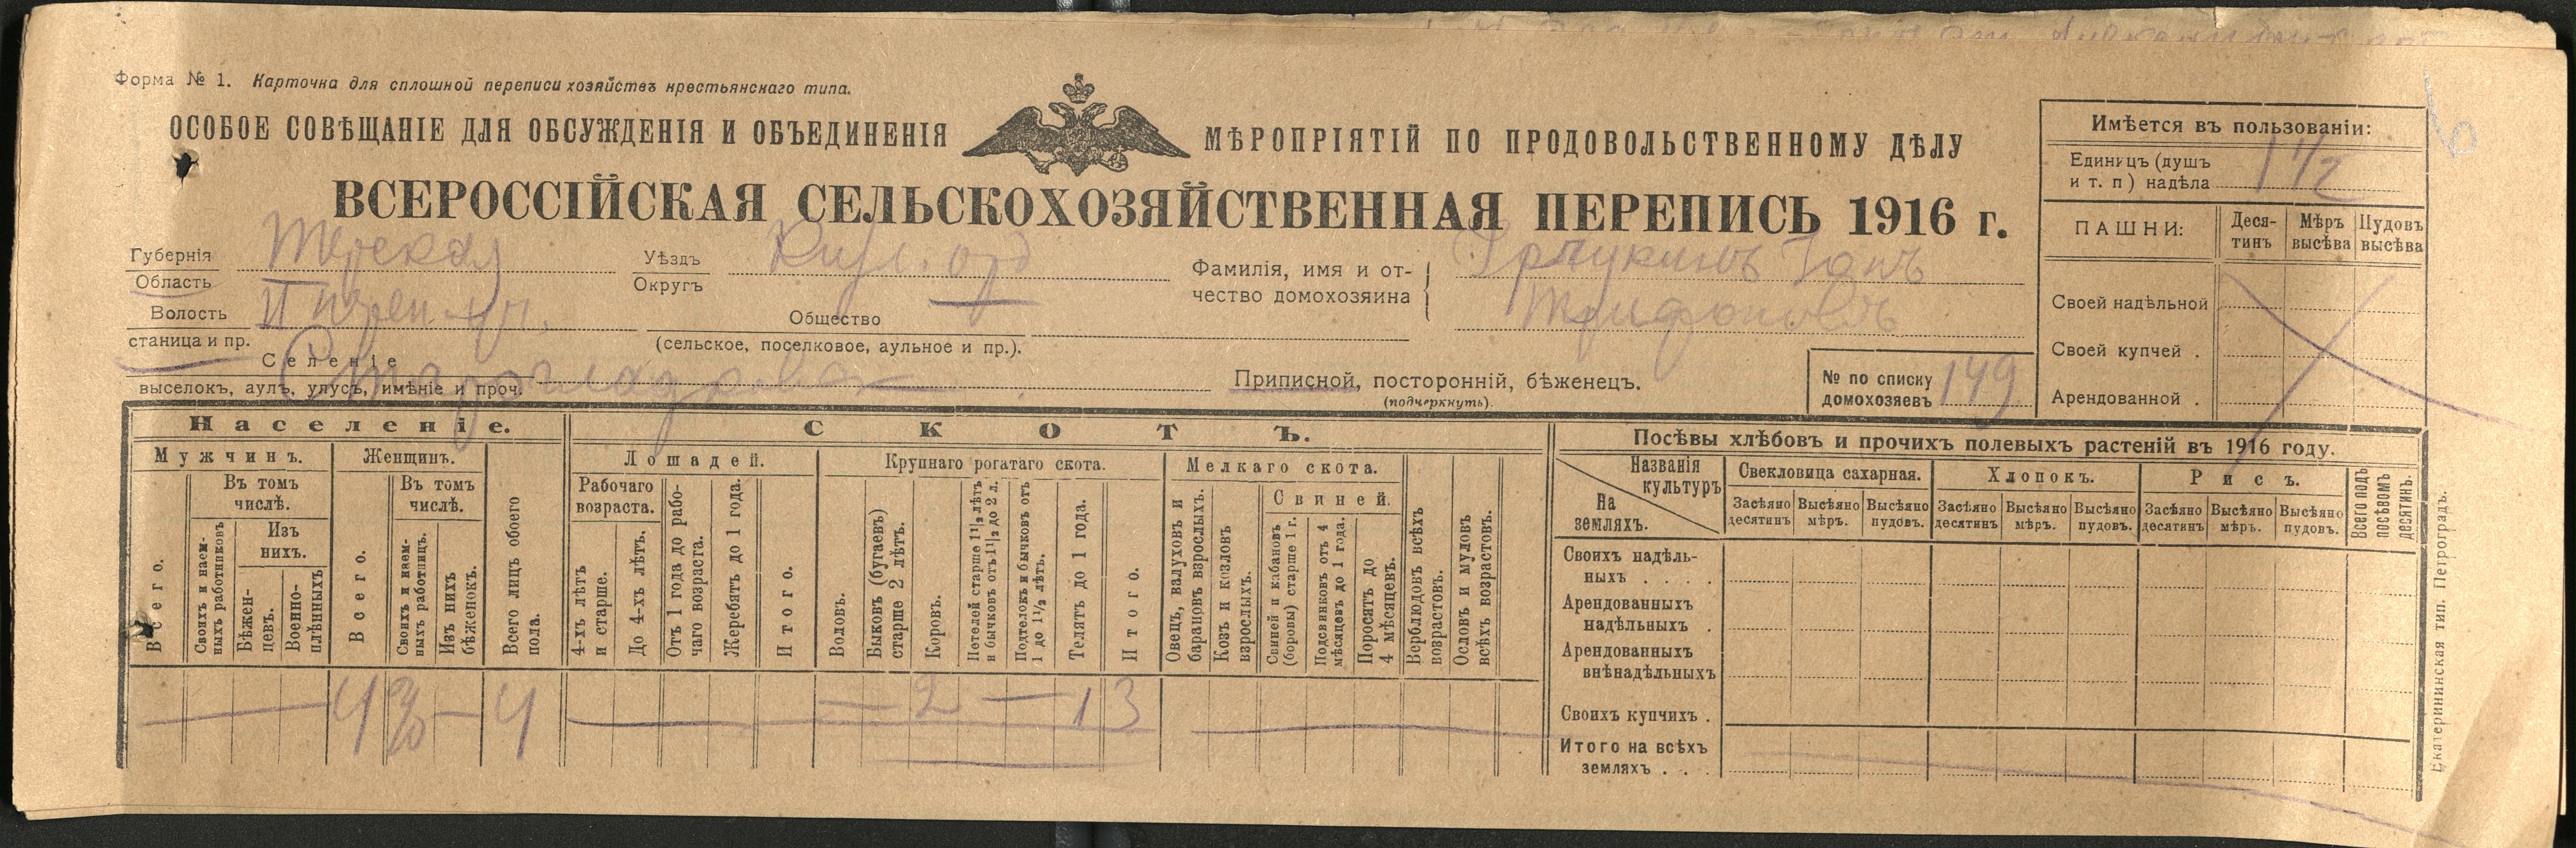 Форма № 1. Карточка для сплошной переписи хозяйствъ крестьянскаго типа.
ОСОБОЕ СОВѢЩАНІЕ ДЛЯ ОБСУЖДЕНІЯ И ОБЪЕДИНЕНІЯ МѢРОПРІЯТІЙ ПО ПРОДОВОЛЬСТВЕННОМУ ДѢЛУ
ВСЕРОССІЙСКАЯ СЕЛЬСКОХОЗЯЙСТВЕННАЯ ПЕРЕПИСЬ 1916 г.
Губернія
Область
Терская
Уѣздъ
Округъ
Кизл. отд
Фамилія, имя и от-
чество домохозяина
Трифоновъ
Волость
станица и пр.
Общество
(сельское, поселковое, аульное и пр.).
Селеніе
выселокъ, аулъ, улусъ, имѣніе и проч.
Старогладовская
Приписной, посторонній, бѣженецъ.
(подчеркнуть).
№ по списку
домохозяевъ 149
Имѣется въ пользованіи:
Единицъ (душъ
и т. п) надѣла 1 1/2
ПАШНИ:
Деся-
тинъ
Мѣръ
высѣва
Пудовъ
высѣва
Своей надѣльной
Своей купчей .
Арендованной .
Населеніе.
Мужчинъ.
Всего.
Въ томъ
числѣ.
Своихъ и наем-
ныхъ работниковъ
Изъ
нихъ.
Бѣжен-
цевъ.
Военно-
плѣнныхъ
Женщинъ.
Всего.
Въ томъ
числѣ.
Своихъ и наем-
ныхъ работницъ.
Изъ нихъ
бѣженокъ.
Всего лицъ обоего
пола.
СКОТЪ.
Лошадей.
Рабочаго
возраста.
4-хъ лѣтъ
и старше.
До 4-хъ лѣтъ.
Отъ 1 года до рабо-
чаго возраста.
Жеребятъ до 1 года.
Итого.
Крупнаго рогатаго скота.
Воловъ.
Быковъ (бугаевъ)
старше 2 лѣтъ.
Коровъ.
Нетелей старше 1 1/2 лѣтъ
и бычковъ отъ 1 1/2 до 2 л.
Подтелокъ и бычковъ отъ
1 до 1 1/2 лѣтъ.
Телятъ до 1 года.
Итого.
Мелкаго скота.
Овецъ, валуховъ и
барановъ взрослыхъ.
Козъ и козловъ
взрослыхъ.
Свиней.
Свиней и кабановъ
(боровы) старше 1 г.
Подсвинковъ отъ 4
мѣсяцевъ до 1 года.
Поросятъ до
4 мѣсяцевъ.
Верблюдовъ всѣхъ
возрастовъ.
Ословъ и муловъ
всѣхъ возрастовъ.
4 3 — 4
— 2 — 1 3
Посѣвы хлѣбовъ и прочихъ полевыхъ растеній въ 1916 году.
Названія
культуръ
На
земляхъ.
Свекловица сахарная.
Засѣяно
десятинъ
Высѣяно
мѣръ.
Высѣяно
пудовъ.
Хлопокъ.
Засѣяно
десятинъ
Высѣяно
мѣръ.
Высѣяно
пудовъ.
Рисъ.
Засѣяно
десятинъ
Высѣяно
мѣръ.
Высѣяно
пудовъ.
Всего подъ
посѣвомъ
десятинъ.
Своихъ надѣль-
ныхъ . . . .
Арендованныхъ
надѣльныхъ .
Арендованныхъ
внѣнадѣльныхъ
Своихъ купчихъ .
Итого на всѣхъ
земляхъ . . .
Екатерининская тип. Петроградъ.